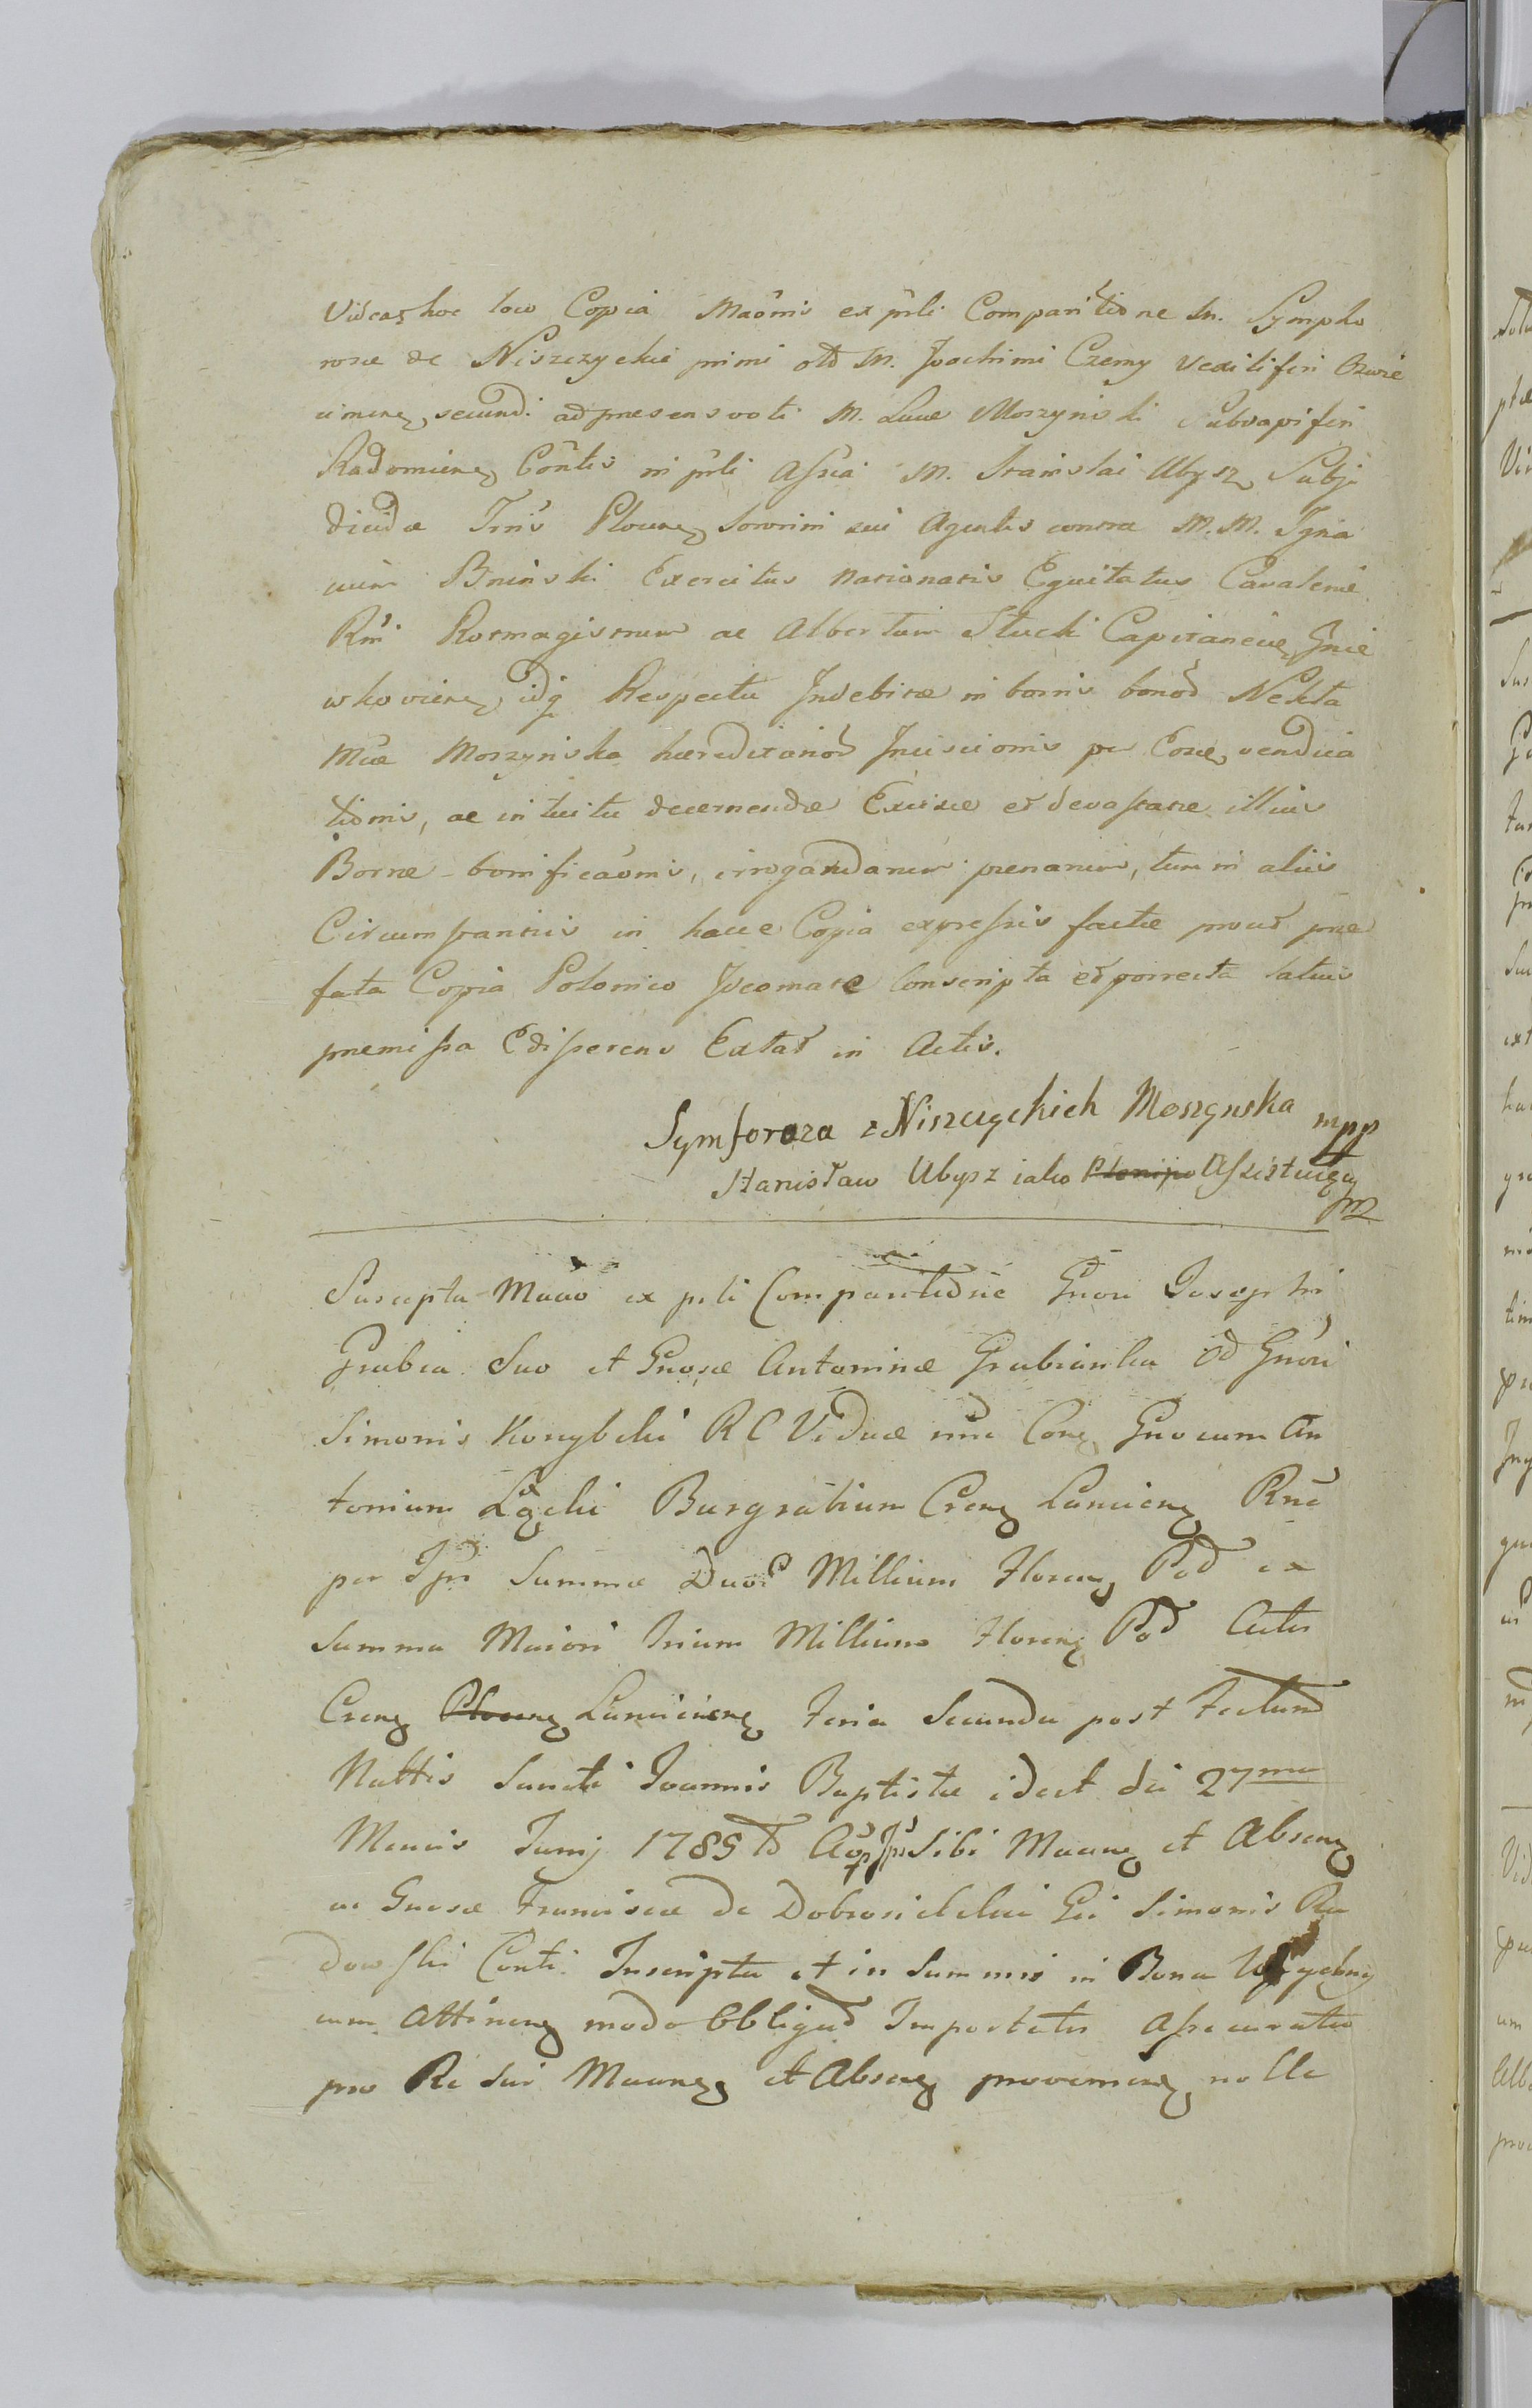 Videas hoc loco Copia Maõnis ex prli Comparitione M. Sympho
rosæ de Niszczyckie primi olt̃ M. Joachimi Czerny Vexiliferi Oswie
cimens, secundi ad præsens voti M. Lucæ Moszynski Subdapiferi
Radomiens Con̄tis in prli Assia M. Stanislai Ubysz Subju
dicis Trris Plocens Sororini sui Agentis contra M. M. Igna
cium Bninski Exercitus Nationalis Equitatus Cavaleriæ
Rni Rotmagistrum ac Albertum Słucki Capitaneum Gnie
wkoviens, idq Respectu Indebitæ in bonis bonor Nekla
Mcæ Moszynska hæreditarior Incisionis per Eosd vendica
tionis, ac intuitu decernendæ Excisæ et devastatæ illius
Borræ bonificaõnis, irrogandarum pœnarum, tum in aliis
Circumstantiis in hacce Copia expressis factæ prout præ
fata Copia Polonico Ideomate Conscripta et porrecta latius
præmissa Edisserens Extat in Actis.
Symforoza z Niszczyckich Moszynska mpp
Stanisław Ubysz iako Plenipo Assistuiący
mp
Suscepta Maõ ex prli Comparitione Gnosi Josephi
Grabia Suo et Gnosæ Antoninæ Grabianka Gnosi
Simonis R C Viduæ nunc Gnosum An
tonium Burgrabium Crens Rni
per Ipm Summæ Duor Millium Florens Pol ex
Summa Maiori Trium Millium Florens Pol Actis
Crens Plocens Feria Secunda post Festum
Nattis Sancti Joannis Baptistæ idest die 27ma
Mensis Junij 1785 Sibi Maans et Absens
ac Gnosæ Franciscæ de Simonis Ra
dowski Conti Inscriptæ et in Summis in Bona
cum Attinens modo Obligat Importatis Assecuratæ
pro Re Sui Maans et Absens proveniens nolle